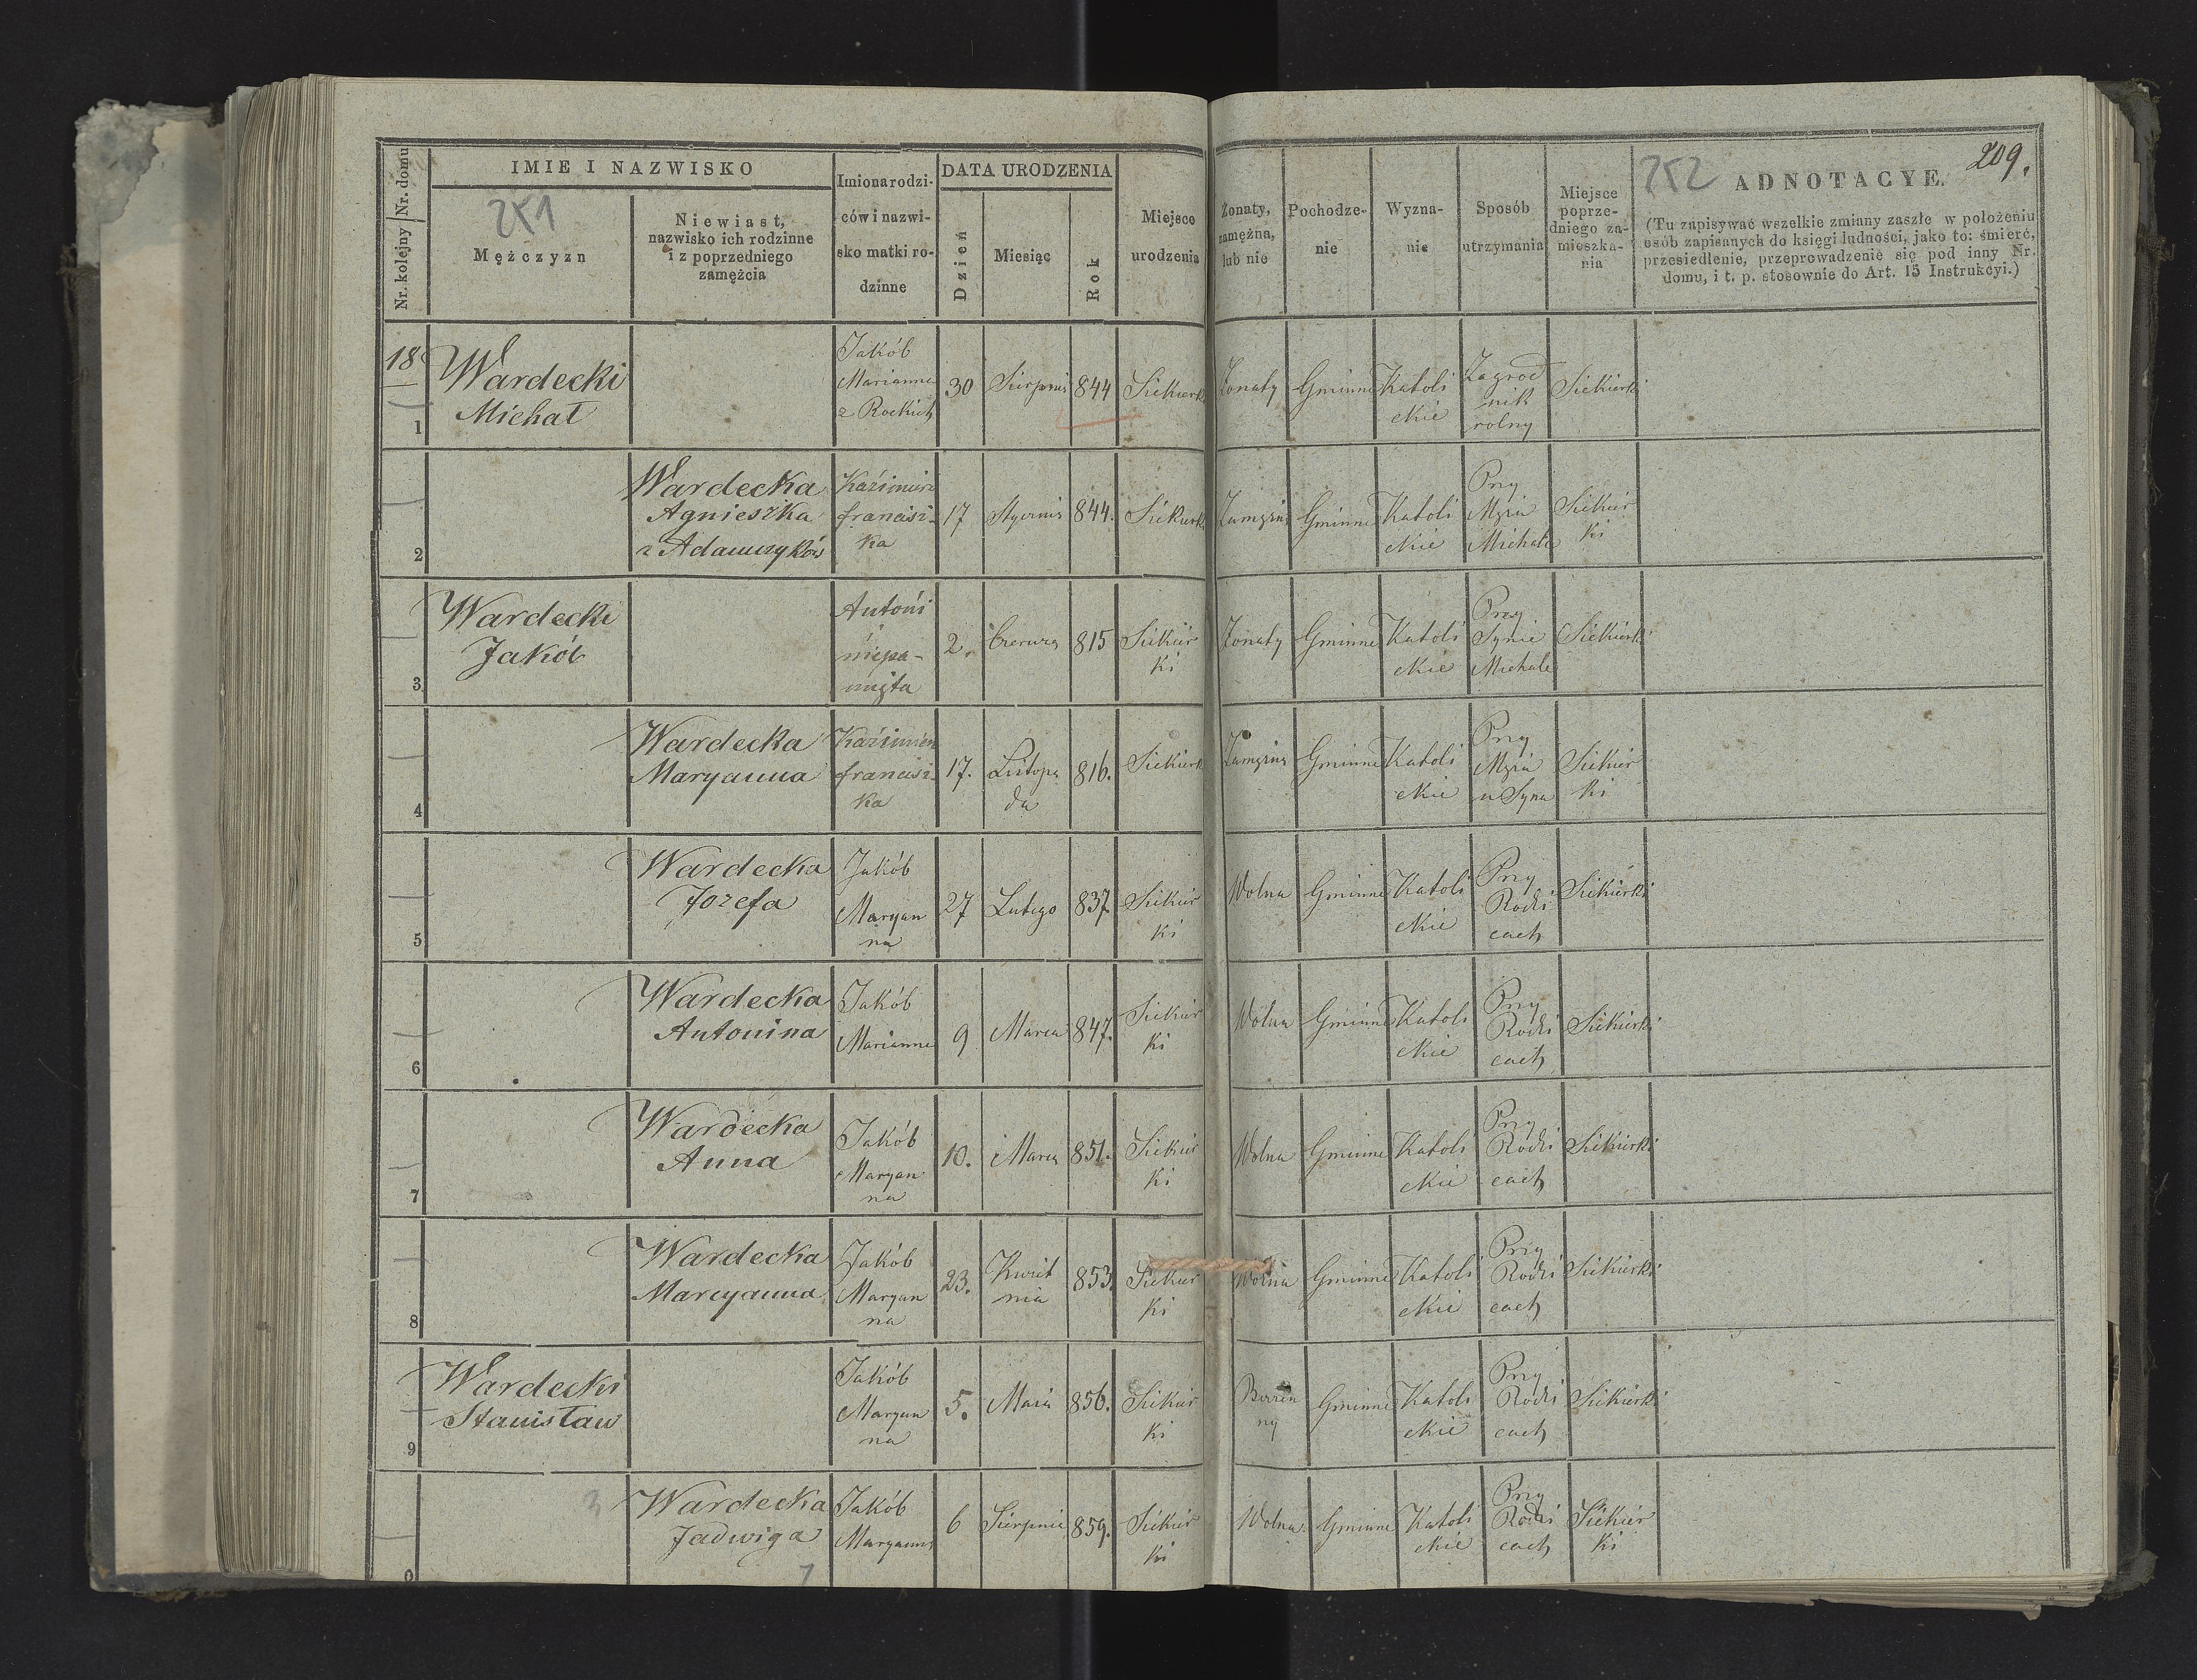 209.
251
252
Nr. kolejny | Nr. domu
IMIE I NAZWISKO
Mężczyzn
Niewiast,
nazwisko ich rodzinne
i z poprzedniego
zamężcia
Imiona rodzi-
ców i nazwi-
sko matki ro-
dzinne
DATA URODZENIA
Dzień
Miesiąc
Rok
Miejsce
urodzenia
Żonaty,
zamężna,
lub nie
Pochodze-
nie
Wyzna-
nie
Sposób
utrzymania
Miejsce
poprze-
dniego za-
mieszka-
nia
ADNOTACYE.
(Tu zapisywać wszelkie zmiany zaszłe w położeniu
osób zapisanych do księgi ludności, jako to: śmierć,
przesiedlenie, przeprowadzenie się pod inny Nr.
domu, i t. p. stosownie do Art. 15 Instrukcyi.)
18
1
Wardecki
Michał
Jakób
Marianna
z Rockich
30
Sierpnia
844
Siekierki
Żonaty
Gminne
Katoli
ckie
Zagrod
nik
rolny
Siekierki
2
Wardecka
Agnieszka
z Adamczyków
Kaźimierz
francisz-
ka
17
Stycznia
844.
Siekierki
Zamężna
Gminne
Katoli
ckie
Przy
Mężu
Michale
Siekier
ki
3
Wardecki
Jakób
Antoni
niepa-
mięta
2.
Czerwca
815
Siekier
ki
Żonaty
Gminne
Katoli
ckie
Przy
Synie
Michale
Siekierki
4
Wardecka
Maryanna
Kaźimierz
francisz-
ka
17.
Listopa
da
816.
Siekierki
Zamężna
Gminne
Katoli
ckie
Przy
Mężu
u Syna
Siekier
ki
5
Wardecka
Jozefa
Jakób
Maryan
na
27
Lutego
837.
Siekier
ki
Wolna
Gminne
Katoli
ckie
Przy
Rodzi
cach
Siekierki
6
Wardecka
Antonina
Jakób
Marianna
9
Marca
847.
Siekier
ki
Wolna
Gminne
Katoli
ckie
Przy
Rodzi
cach
Siekierki
7
Wardecka
Anna
Jakób
Maryan
na
10.
Marca
851.
Siekier
ki
Wolna
Gminne
Katoli
ckie
Przy
Rodzi
cach
Siekierki
8
Wardecka
Maryanna
Jakób
Maryan
na
23.
Kwiet
nia
853.
Siekier
ki
Wolna
Gminne
Katoli
ckie
Przy
Rodzi
cach
Siekierki
9
Wardecki
Stanisław
Jakób
Maryan
na
5.
Maia
856.
Siekier
ki
Bezżen
ny
Gminne
Katoli
ckie
Przy
Rodzi
cach
Siekierki
0
3
Wardecka
Jadwiga
7
Jakób
Maryanna
6
Sierpnia
859.
Siekier
ki
Wolna.
Gminne
Katoli
ckie
Przy
Rodzi
cach
Siekier
ki